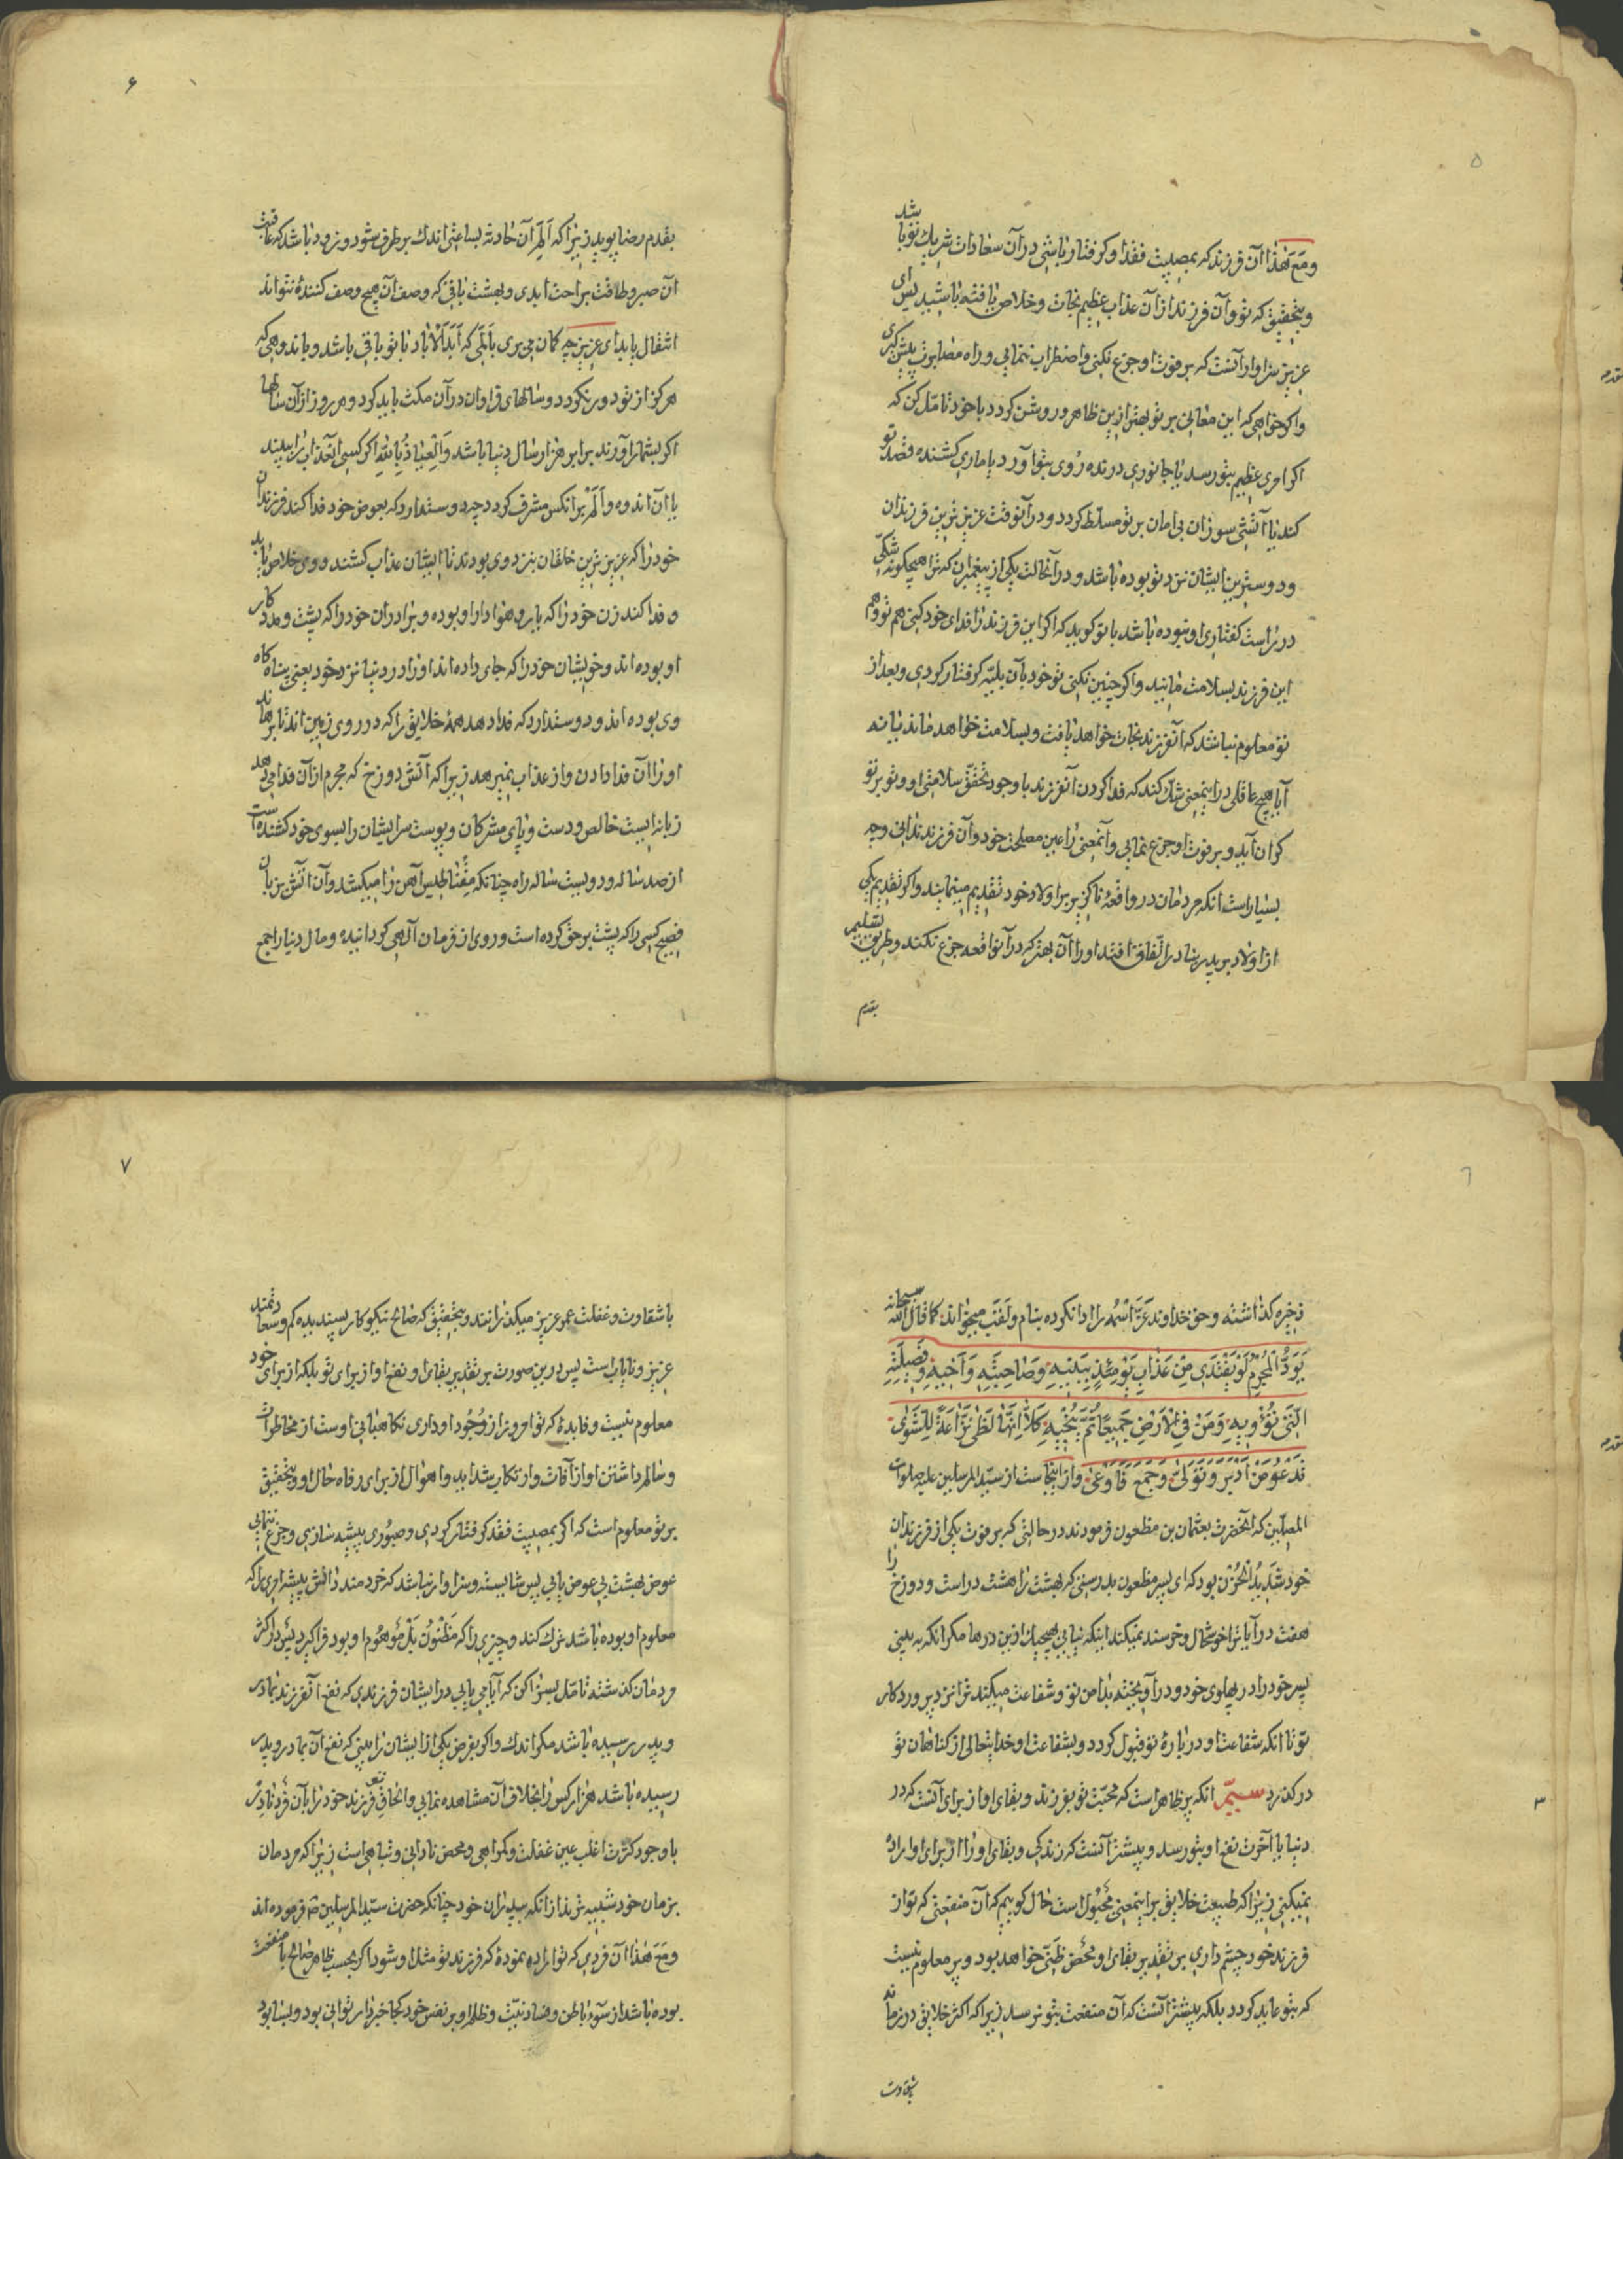 ۵
ومَعَ هٰذا آن فرزند که بمصیبت فقد او کرفتار باشی در آن سعادات شریك تو باشد
وبتحقیق که تو وآن فرزند از آن عذاب عظیم نجات وخلاص یافته باشید پس ای
عزیز سزاوار آنست که بر فوت او جزع نکنی واضطراب ننمایی وراه مصابرت پیش کیری
واکر خواهی که این معانی بر تو بهتر ازین ظاهر وروشن کردد با خود تامّل کن که
اکر امری عظیم بتو رسد یا جانوری درنده رُوی بتو آورد یا ماری کشنده قصد تو
کند یا آتشی سوزان بی امان بر تو مسلّط کردد ودر آنوقت عزیزترین فرزندان
ودوسترین ایشان نزد تو بوده باشد ودر آنحالت یکی از پیغمبران که ترا هیچکونه شکّی
در راست کفتاری او نبوده باشد با تو کوید که اکر این فرزند را فدای خود کنی هم تو وهم
این فرزند بسلامت مانید واکر چنین نکنی تو خود بآن بلیّه کرفتار کردی وبعد از
تو معلوم نباشد که آنفرزند نجات خواهد یافت وبسلامت خواهد ماند یا نه
آیا هیچ عاقلی در اینمعنی شك کند که فدا کردن آنفرزند با وجود تحقّق سلامتی او وتو بر تو
کران آید وبر فوت او جزع نمایی وآنمعنی را عین مصلحت خود وآن فرزند ندانی وچه
بسیار است انکه مردمان در واقعهٔ ناکزیر بر اولاد خود تقدیم مینمایند واکر تقدیم یکی
از اولاد بر پدر بنادر اتّفاق افتد او را آن بهتر که در آنواقعه جزع نکند وطریق تسلیم
بقدم
۶
بقدم رضا پوید زیرا که اَلَمِ آن حادثه بساعتی اندك بر طرف میشود وزود باشد که عاقبت
آن صبر وطاقت براحت ابدی وبهشت باقی که وصف آن هیچ وصف کنندهٔ نتواند
انتقال یابد ای عزیز چه کمان می بری بِاَلَمی که اَبَدَاْلآباد با تو باقی باشد وباندوهی که
هرکز از تو دور نکردد وسالهای فراوان در آن مکث باید کرد وهر روز از آن سالها
اکر بشمار آورند برابر هزار سال دنیا باشد وَاْلعِیاذُ بِاللهِ اکر کسی آنعذاب را ببیند
یا آن اندوه واَلَم بر انکس مشرف کردد چه دوست دارد که بعوض خود فدا کند فرزندان
خود را که عزیزترین خلقان نزد وی بودند تا ایشان عذاب کشند ووی خلاص یابد
وفدا کند زن خود را که یار وهوادار او بوده وبرادران خود را که پشت ومددکار
او بوده اند وخویشان خود را که جای داده اند او را در دنیا نزد خود یعنی پناه کاه
وی بوده اند ودوست دارد که فدا دهد همهٔ خلایق را که در روی زمین اند تا برهاند
او را آن فدا دادن واز عذاب نمیرهد زیرا که آتش دوزخ که مجرم از آن فدا می دهد
زبانه ایست خالص ودست وپای مشرکان وپوست سر ایشان را بسوی خود کشنده است
از صد ساله ودویست ساله راه چنانکه مِقناطیس آهن را میکشد وآن آتش بزبان
فصیح کسی را که پشت بر حق کرده است وروی از فرمان آلهی کردانیده ومال دنیا را جمع
٦
ذخیره کذاشته وحق خداوند عَزَّ اسْمُه را ادا نکرده بنام ولَقَب میخواند کما قال الله سبحانه
یَوَدُّ الْمُجْرِمُ لَوْ یَفْتَدی مِنْ عَذابِ یَوْمِئِذٍ بِبَنیهِ وَصاحِبَتِهِ وَاَخیهِ وَفَصیلَتِهِ
الَّتی تُؤْویهِ وَمَنْ فِی الْاَرْضِ جَمیعًا ثُمَّ یُنْجیهِ کَلّا اِنَّها لَظی نَزّاعَةً لِلشَّوی
تَدْعُو مَنْ اَدْبَرَ وَتَوَلّی وَجَمَعَ فَاَوْعی واز اینجاست از سیّد المرسلین علیه صلوات
المصلّین که آنحضرت بعثمان بن مظعون فرمودند در حالتی که بر فوت یکی از فرزندان
خود شَدیدُ الْحُزْن بود که ای پسر مظعون بدرستی که بهشت را هشت در است ودوزخ را
هفت در آیا ترا خوشحال وخرسند نمیکند اینکه نیایی بهیچیك ازین درها مکر انکه به بینی
پسر خود را در پهلوی خود ودر آویخته بدامن تو وشفاعت میکند ترا نزد پروردکار
تو تا انکه شفاعت او در بارهٔ تو قبول کردد وبشفاعت او خدایتعالی از کناهان تو
در کذرد سیّم انکه پر ظاهر است که محبّت تو بفرزند وبقای او از برای آنست که در
۳
دنیا یا آخرت نفع او بتو رسد وبیشتر آنست که زندکی وبقای او را از برای او اراده
نمیکنی زیرا که طبیعت خلایق بر اینمعنی مجبول است حال کوییم که آن منفعتی که تو از
فرزند خود چشم داری بر تقدیر بقای او محض ظَنّی خواهد بود وپر معلوم نیست
که بتو عاید کردد بلکه بیشتر آنست که آن منفعت بتو نرسد زیرا که اکثر خلایق در زمانه
بشقاوت
۷
با شقاوت وغفلت عمر عزیز میکذرانند وبتحقیق که صالح نیکوکار پسندیده کم وسعادتمند
عزیز ونایاب است پس درین صورت بر تقدیر بقای او نفع او از برای تو بلکه از برای خود
معلوم نیست وفایدهٔ که تو امروز از وُجُود او داری نکاهبانی اوست از مخاطرات
وسالم داشتن او از آفات وارتکاب شداید واهوال از برای رفاه حال او وبتحقیق
بر تو معلوم است که اکر بمصیبت فقد کرفتار کردی وصبُوری پیشه سازی وجزع ننمایی
عوض بهشت بی عوض یابی پس شایسته وسزاوار نباشد که خردمند دانش پیشه امری را که
معلوم او بوده باشد ترك کند وچیزی را که مَظنُون بَلْ مَوْهُوم او بود فرا کیرد پس در اکثر
مردمان کذشته تامّل بسزا کن که آیا می یابی در ایشان فرزندی که نفع آنفرزند بمادر
وپدر رسیده باشد مکر اندك واکر بفرض یکی از ایشان را بینی که نفع آن بمادر وپدر
رسیده باشد هزار کس را بخلاف آن مشاهده نمایی والحاق فرزند خود را بآن فَردِ نادِر
با وجود کثرت اغلب عین غفلت وکمراهی ومحض نادانی وتباهی است زیرا که مردمان
بزمان خود شبیه ترند از انکه بپدران خود چنانکه حضرت سیّد المرسلین ص فرموده اند
ومَعَ هٰذا آن فردی که تو اراده نمودهٔ که فرزند تو مثل او شود اکر بحسب ظاهر صالح با منفعت
بوده باشد از سُوء باطن وفساد نیّت وظلم او بر نفس خود کجا خبردار توانی بود وبسا بود